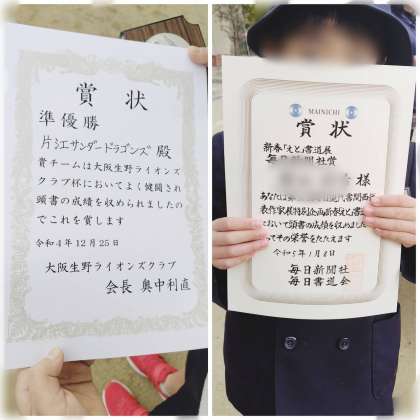 賞状
準優勝
片江サンダードラゴンズ 殿
貴チームは大阪生野ライオンズ
クラブ杯においてよく健闘され
頭書の成績を収められましたの
でこれを賞します
令和4年12月25日
大阪生野ライオンズクラブ
会長 奥中利直
MAINICHI
賞状
新春「えと」書道展
毎日新聞社賞
様
あなたは
代書関西
表作家展特別企画新春えと書道
において頭書の成績を収めました
ってその栄誉をたたえます
令和5年1月8日
毎日新聞社
毎日書道会